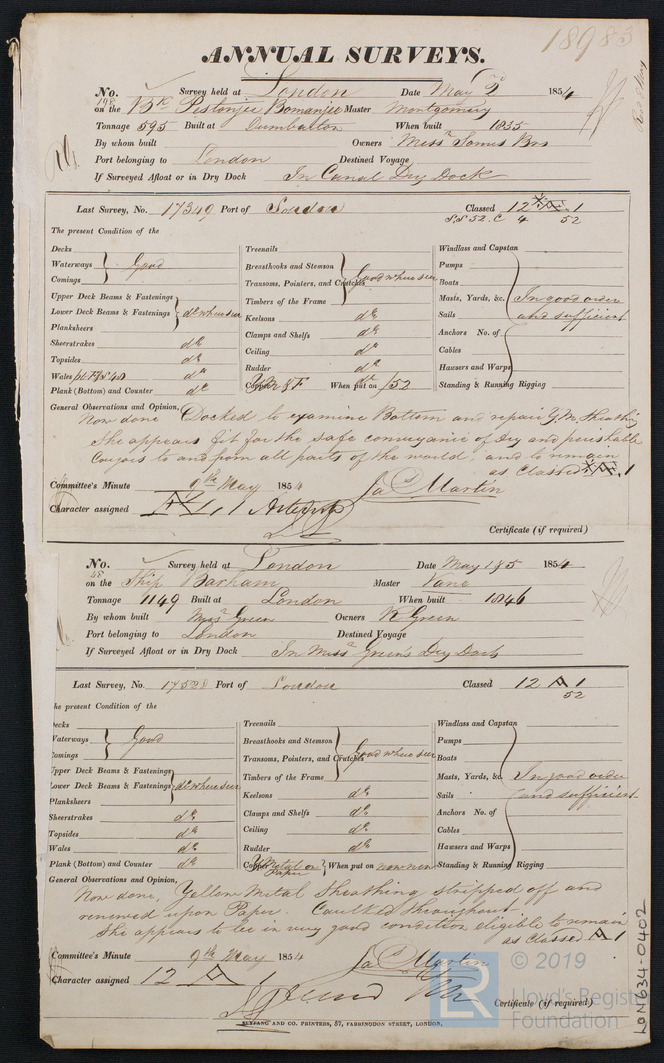 18983
ANNUAL SURVEYS.
No. Survey held at London Date May 9 1854
198 on the Bk Pestonjee Bomanjee Master Montgomery
Tonnage 595 Built at Dumbarton When built 1835
By whom built Owners Messrs Somes Bros
Port belonging to London Destined Voyage
If Surveyed Afloat or in Dry Dock In Canal Dry Dock
Last Survey, No. 17349 Port of London Classed 12 A 1
S.S 52. C 4 52
The present Condition of the
Decks
Waterways Good
Comings
Upper Deck Beams & Fastenings
Lower Deck Beams & Fastenings do where seen
Planksheers
Sheerstrakes do
Topsides do
Wales do
Plank (Bottom) and Counter do
Treenails
Breasthooks and Stemson
Transoms, Pointers, and Crutches Good where seen
Timbers of the Frame
Keelsons do
Clamps and Shelfs do
Ceiling do
Rudder do
Copper YM & F When put on /52
Windlass and Capstan
Pumps
Boats
Masts, Yards, &c. In good order
Sails and sufficient
Anchors No. of
Cables
Hausers and Warps
Standing & Running Rigging
General Observations and Opinion,
Now done Docked to examine Bottom and repair Y.M. Sheathing
She appears fit for the safe conveyance of Dry and perishable
Cargoes to and from all parts of the world, and to remain
as Classed 1
Committee's Minute 9th May 1854 Jas Martin
Character assigned
Certificate (if required)
No. Survey held at London Date May 1 & 5 1854
48 on the Ship Barham Master Vane
Tonnage 1149 Built at London When built 1846
By whom built Messrs Green Owners R Green
Port belonging to London Destined Voyage
If Surveyed Afloat or in Dry Dock In Messrs Green's Dry Dock
Last Survey, No. Port of London Classed 12 A 1
52
he present Condition of the
ecks
Waterways Good
omings
pper Deck Beams & Fastenings
ower Deck Beams & Fastenings do where seen
Planksheers
Sheerstrakes do
Topsides do
Wales do
Plank (Bottom) and Counter do
Treenails
Breasthooks and Stemson
Transoms, Pointers, and Crutches Good where seen
Timbers of the Frame
Keelsons do
Clamps and Shelfs do
Ceiling do
Rudder do
Copper Y Metal on Paper When put on now new
Windlass and Capstan
Pumps
Boats
Masts, Yards, &c. In good order
Sails and sufficient
Anchors No. of
Cables
Hausers and Warps
Standing & Running Rigging
General Observations and Opinion,
Now done, Yellow Metal Sheathing stripped off and
renewed upon Paper. Caulked throughout.
She appears to be in very good condition eligible to remain
as Classed A 1
Committee's Minute 9th May 1854 Jas Martin
Character assigned 12 A 1
Certificate (if required)
SEYFANG AND CO. PRINTERS, 57, FARRINGDON STREET, LONDON.
LR © 2019
Lloyd's Register
Foundation
LON634-0402